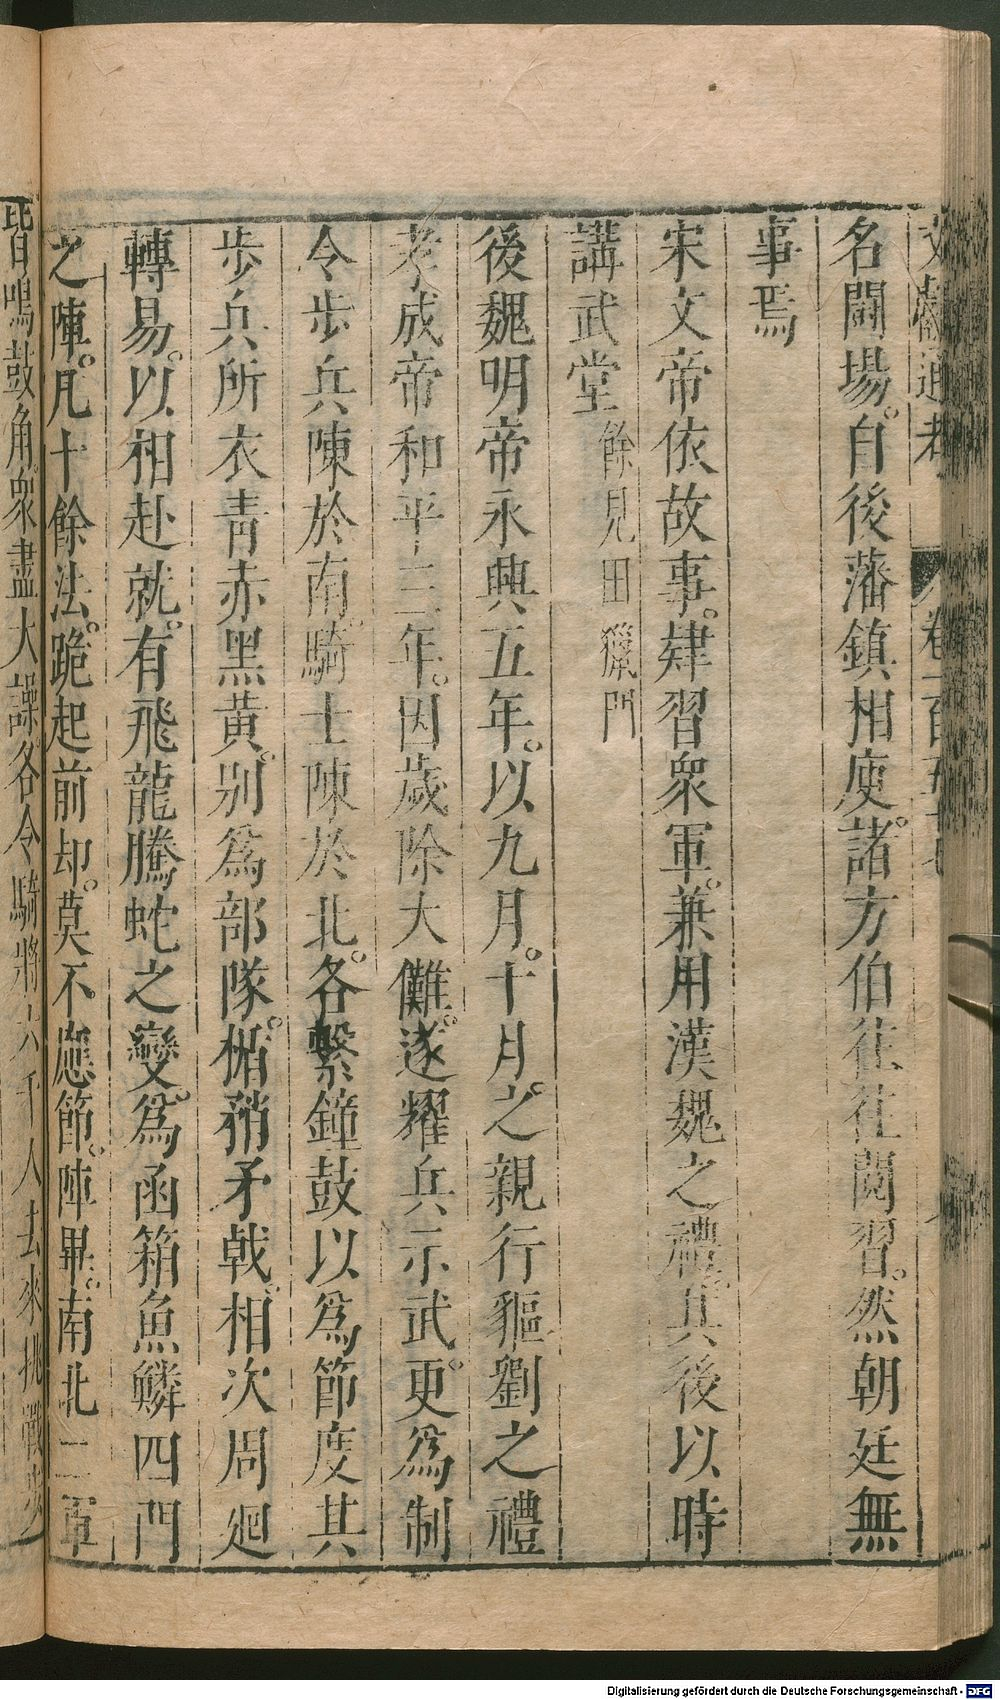 文獻通考 卷一百五十七
名鬬場。自後藩鎮相庾。諸方伯往往閱習。然朝廷無
事焉
宋文帝依故事。肄習衆軍。兼用漢魏之禮。其後以時
講武堂餘見田獵門
後魏明帝永興五年。以九月。十月。之親行貙劉之禮
孝成帝和平三年。因歲除大儺。遂耀兵示武。更爲制
令步兵陳於南。騎士陳於北。各繫鐘鼓以爲節度其
步兵所衣靑赤黑黃。别爲部隊。楯矟矛戟。相次周廻
轉易。以相赴就。有飛龍騰蛇之變。爲函箱魚鱗四門
之陣。凡十餘法。跪起前却。莫不應節。陣畢。南北二軍
皆鳴鼓角衆盡大譟各令騎將六千人去來挑戰步
Digitalisierung gefördert durch die Deutsche Forschungsgemeinschaft - DFG